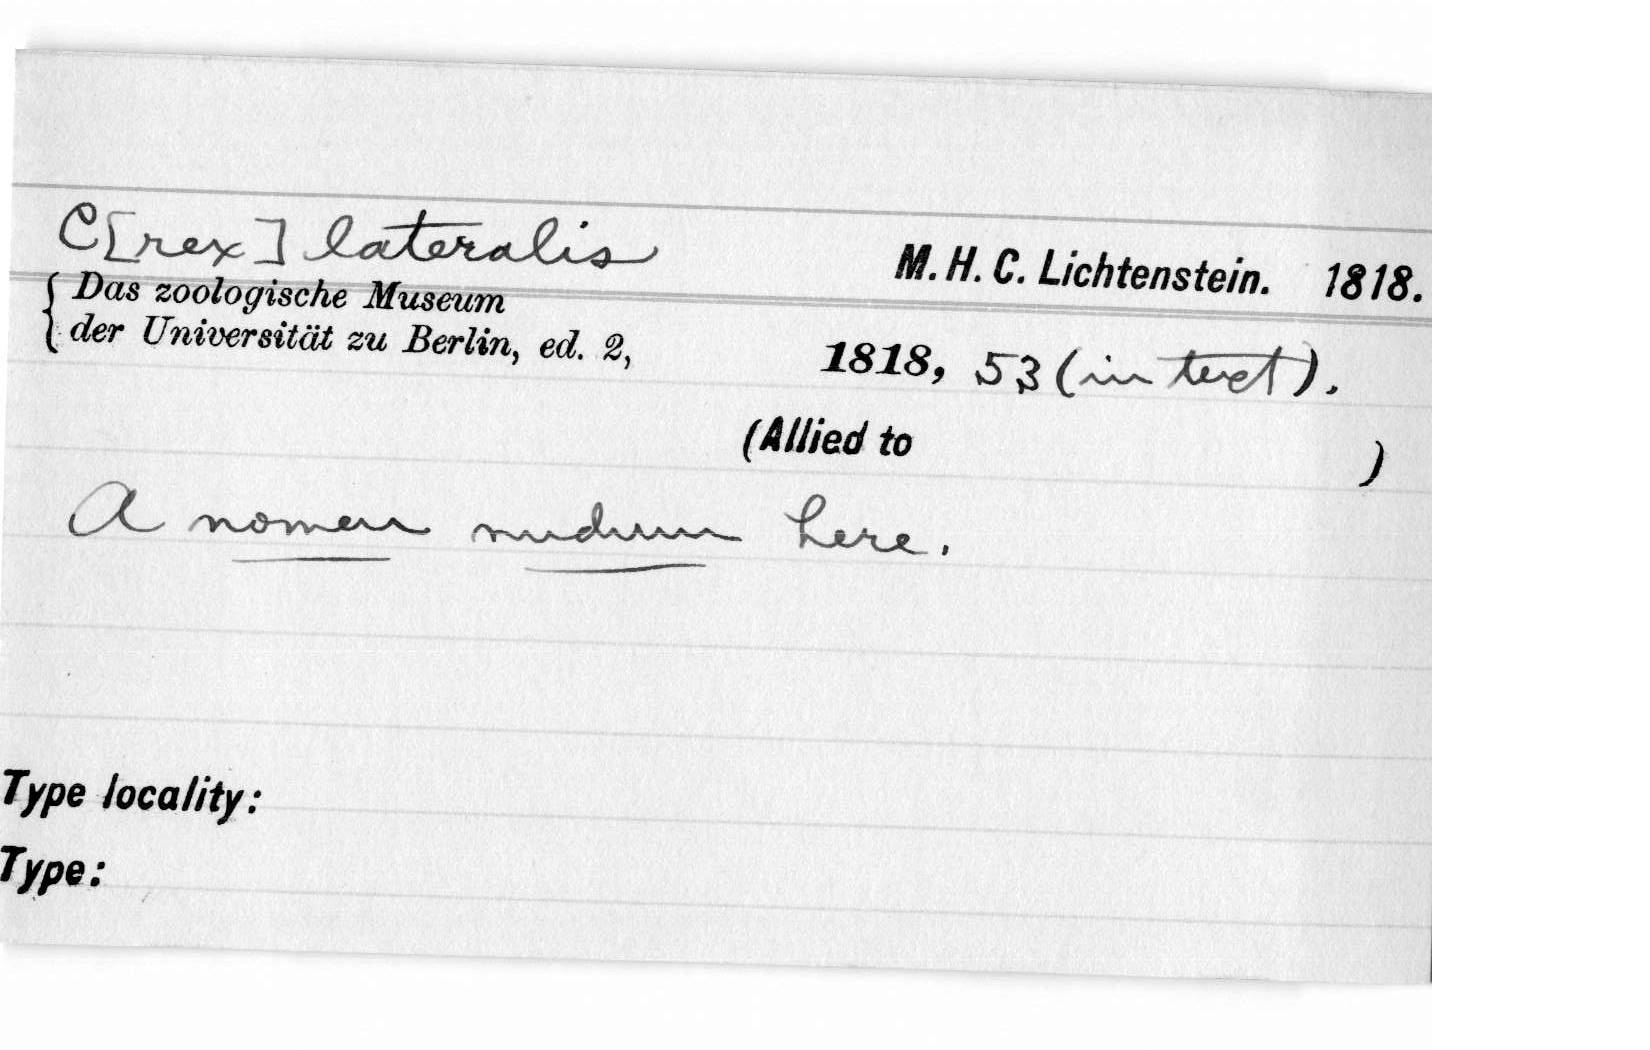 C[rex] lateralis
M. H. C. Lichtenstein. 1818.
{ Das zoologische Museum
der Universität zu Berlin, ed. 2,
1818, 53 (in text).
(Allied to )
A nomen nudum here.
Type locality:
Type: